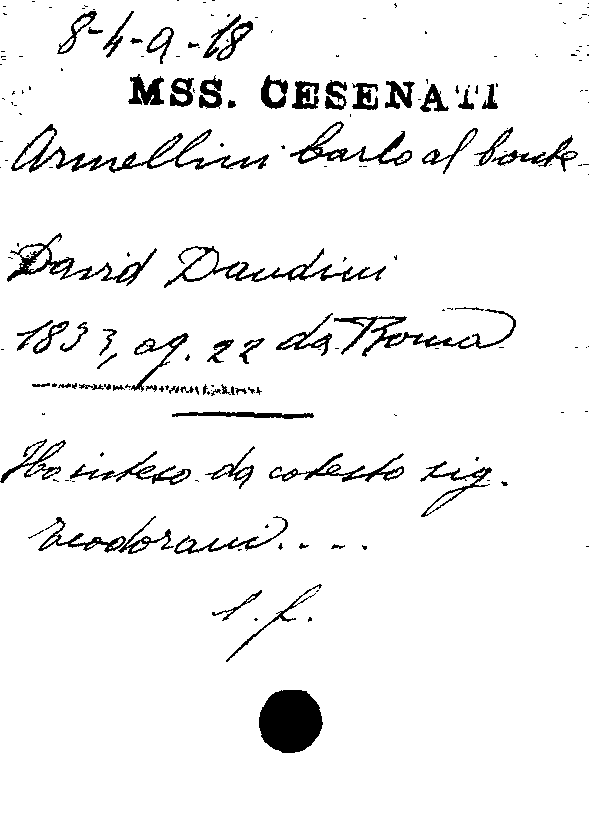 8-4-9-18
MSS. CESENATI
Armellini Carlo al Conte
David Dandini
1833, ag. 22 da Roma
Ho inteso da cotesto sig.
Teodorani....
l. f.